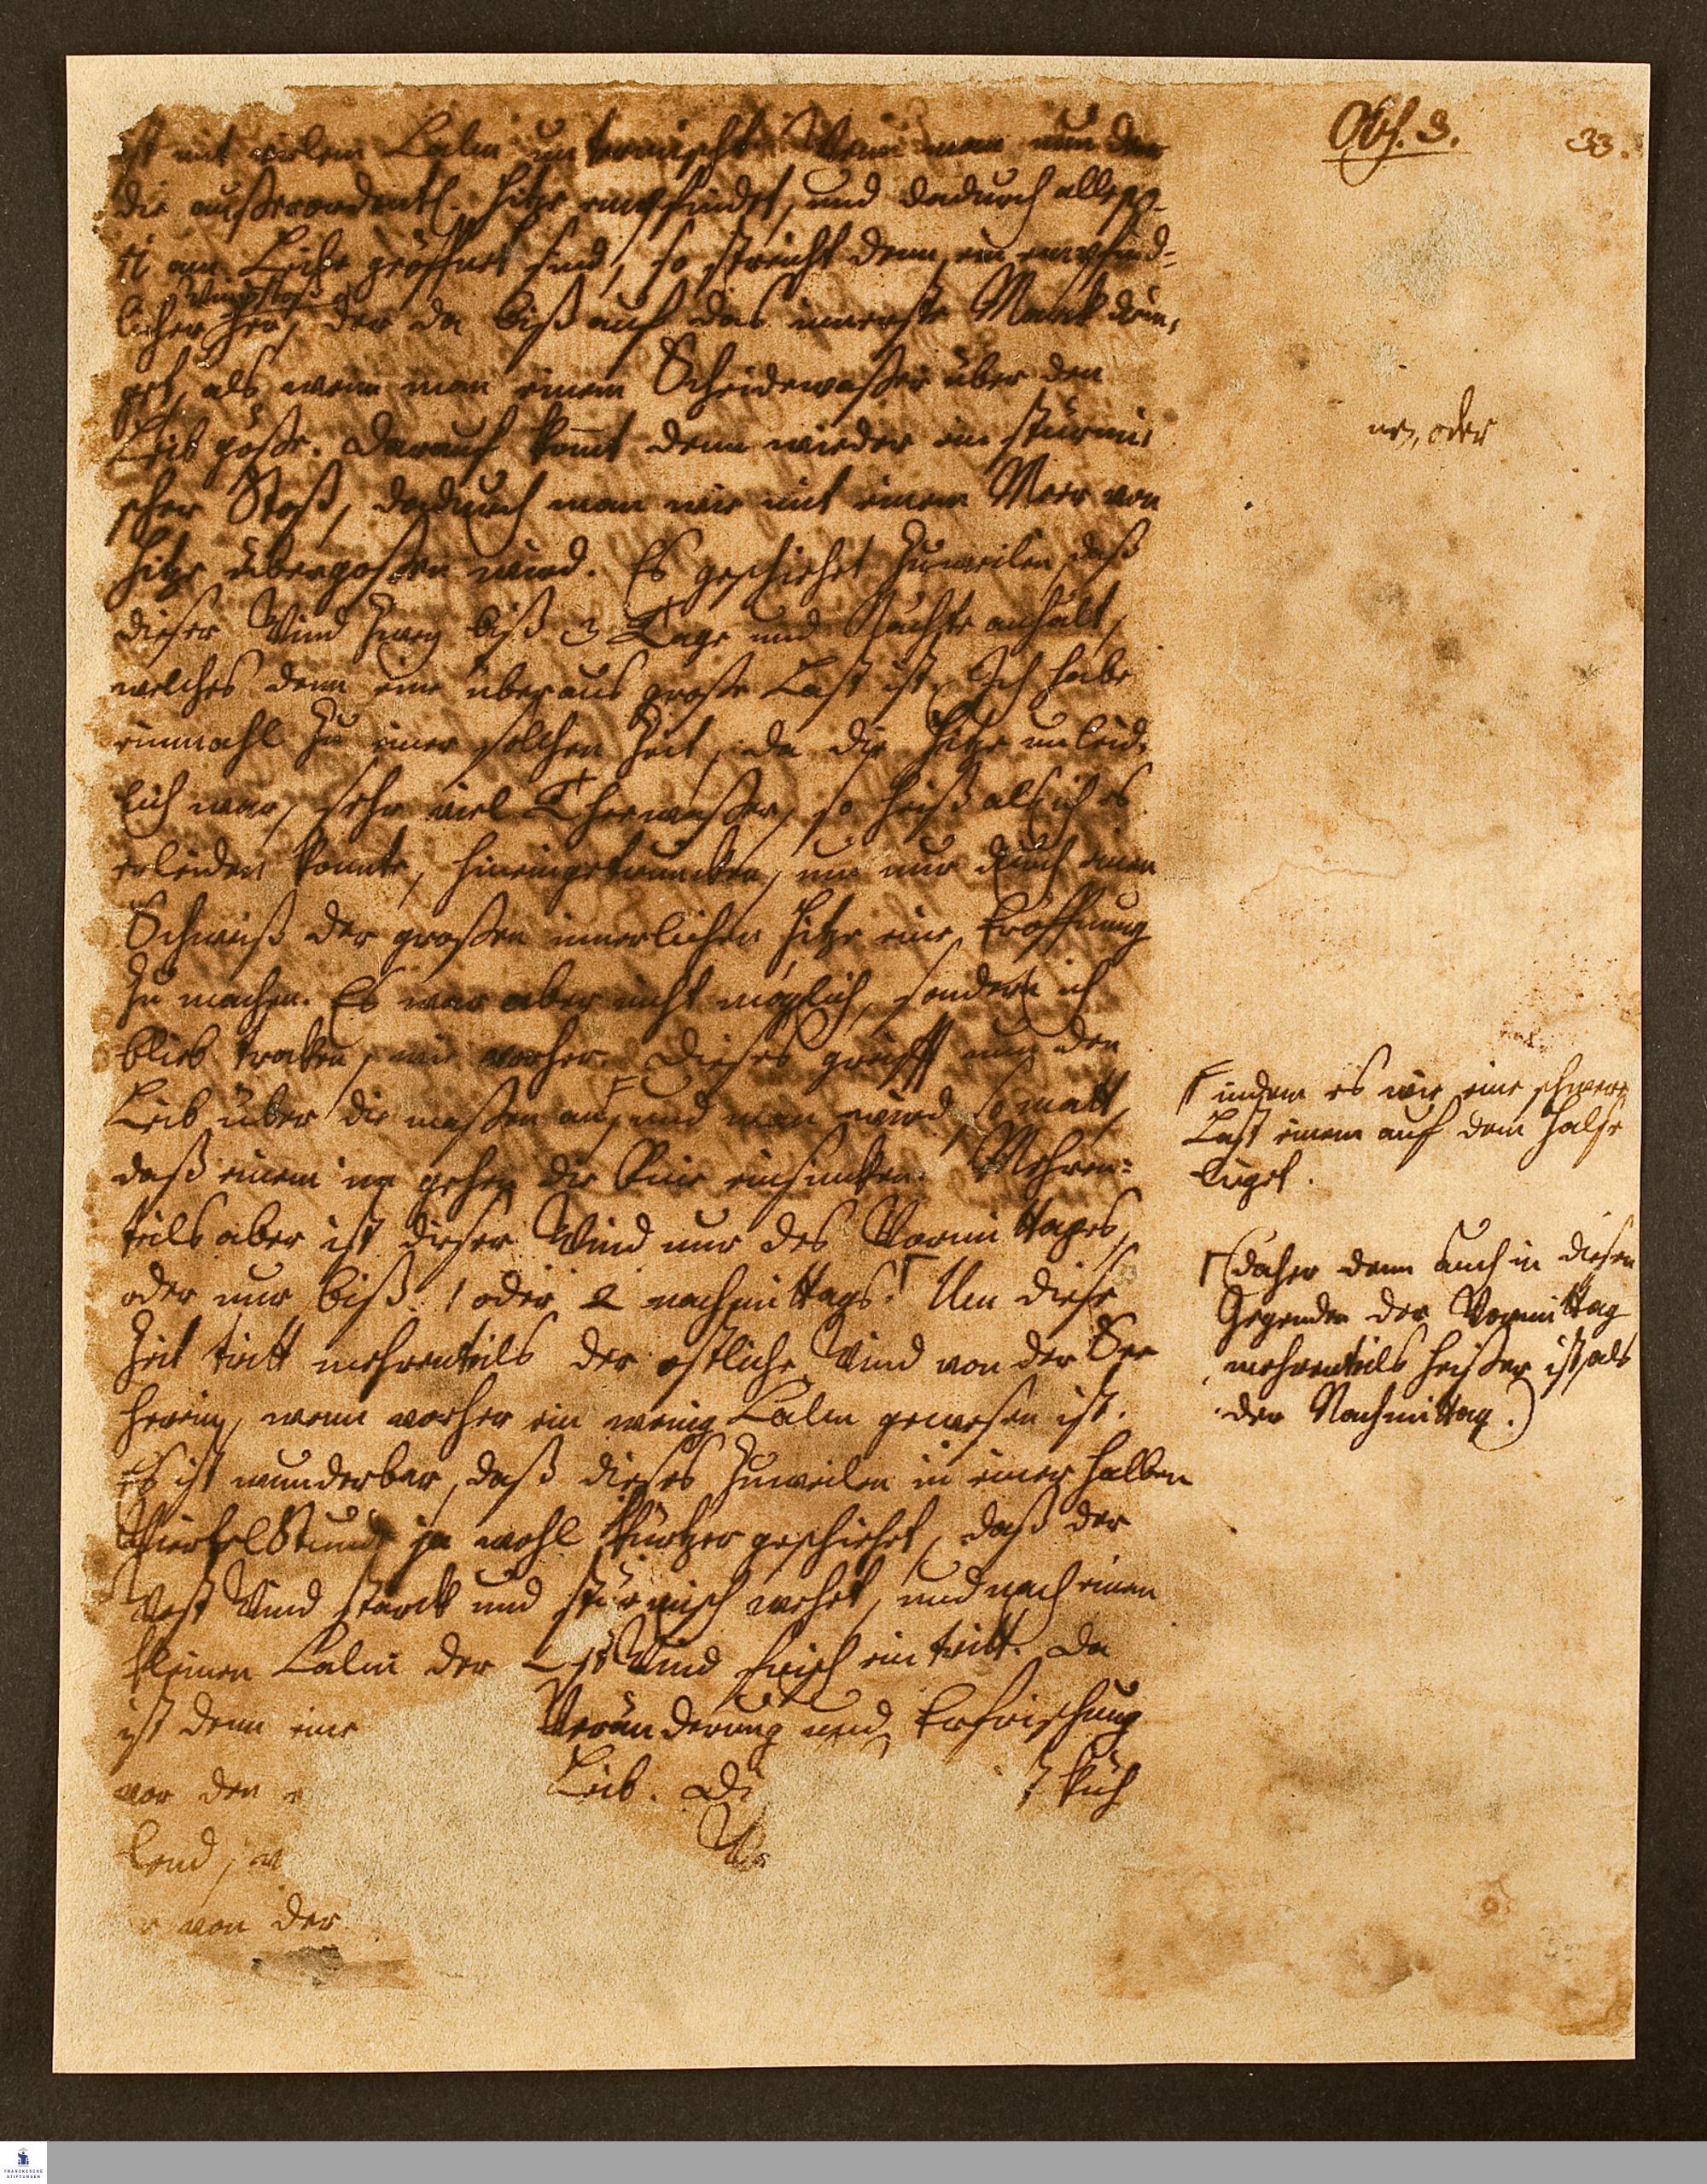 Obs. 3.
33.
ist mit vielem Calm untermischt. Wenn man nun den
die außerordentl. Hitze empfindet, und dadurch alle po-
ri am Leibe geöffnet sind, so streicht denn ein empfind-
Windstoß
licher her, der da biß auf das innerste Marck drin-
get, als wenn man einem Scheidewaßer über den
Leib göße. Darauf komt denn wieder ein stürmi-
scher Stoß, dadurch man wie mit einem Meer von
Hitze übergoßen wird. Es geschiehet zuweilen, daß
dieser Wind zwey biß 3 Tage und Nächte anhält,
welches denn eine überaus große Last ist. Ich habe
einmahl zu einer solchen Zeit, da die Hitze unleid-
lich war, sehr viel Theewaßer, so heiß als ich es
erleiden konnte, hineingetruncken, um nur durch einen
Schweiß der großen innerlichen Hitze eine Eröffnung
zu machen. Es war aber nicht möglich, sondern ich
blieb trocken, wie vorher. Dieses greifft nun den
Leib über die maßen an, und man wird so matt,
daß einem im gehen die Knie einsincken. Mehren-
teils aber ist dieser Wind nur des Vormittages,
oder nur biß 1 oder 2 nachmittags. Um diese
Zeit tritt mehrenteils der ostliche Wind von der See
herein, wenn vorher ein wenig Calm gewesen ist.
Es ist wunderbar, daß dieses zuweilen in einer halben
Viertel Stunde ja wohl kürtzer geschiehet, daß der
West Wind starck und stürmisch wehet, und nach einem
kleinen Calm der Ost Wind frisch eintritt. Da
ist denn eine Veränderung und Erfrischung
vor den Leib. Di küh
lend,
von der
ne, oder
indem es wie eine schwere
Last einem auf dem Halse
lieget.
(daher denn auch in diesen
Gegenden der Vormittag
mehrenteils heißer ist, als
der Nachmittag.)
FRANCKESCHE
STIFTUNGEN